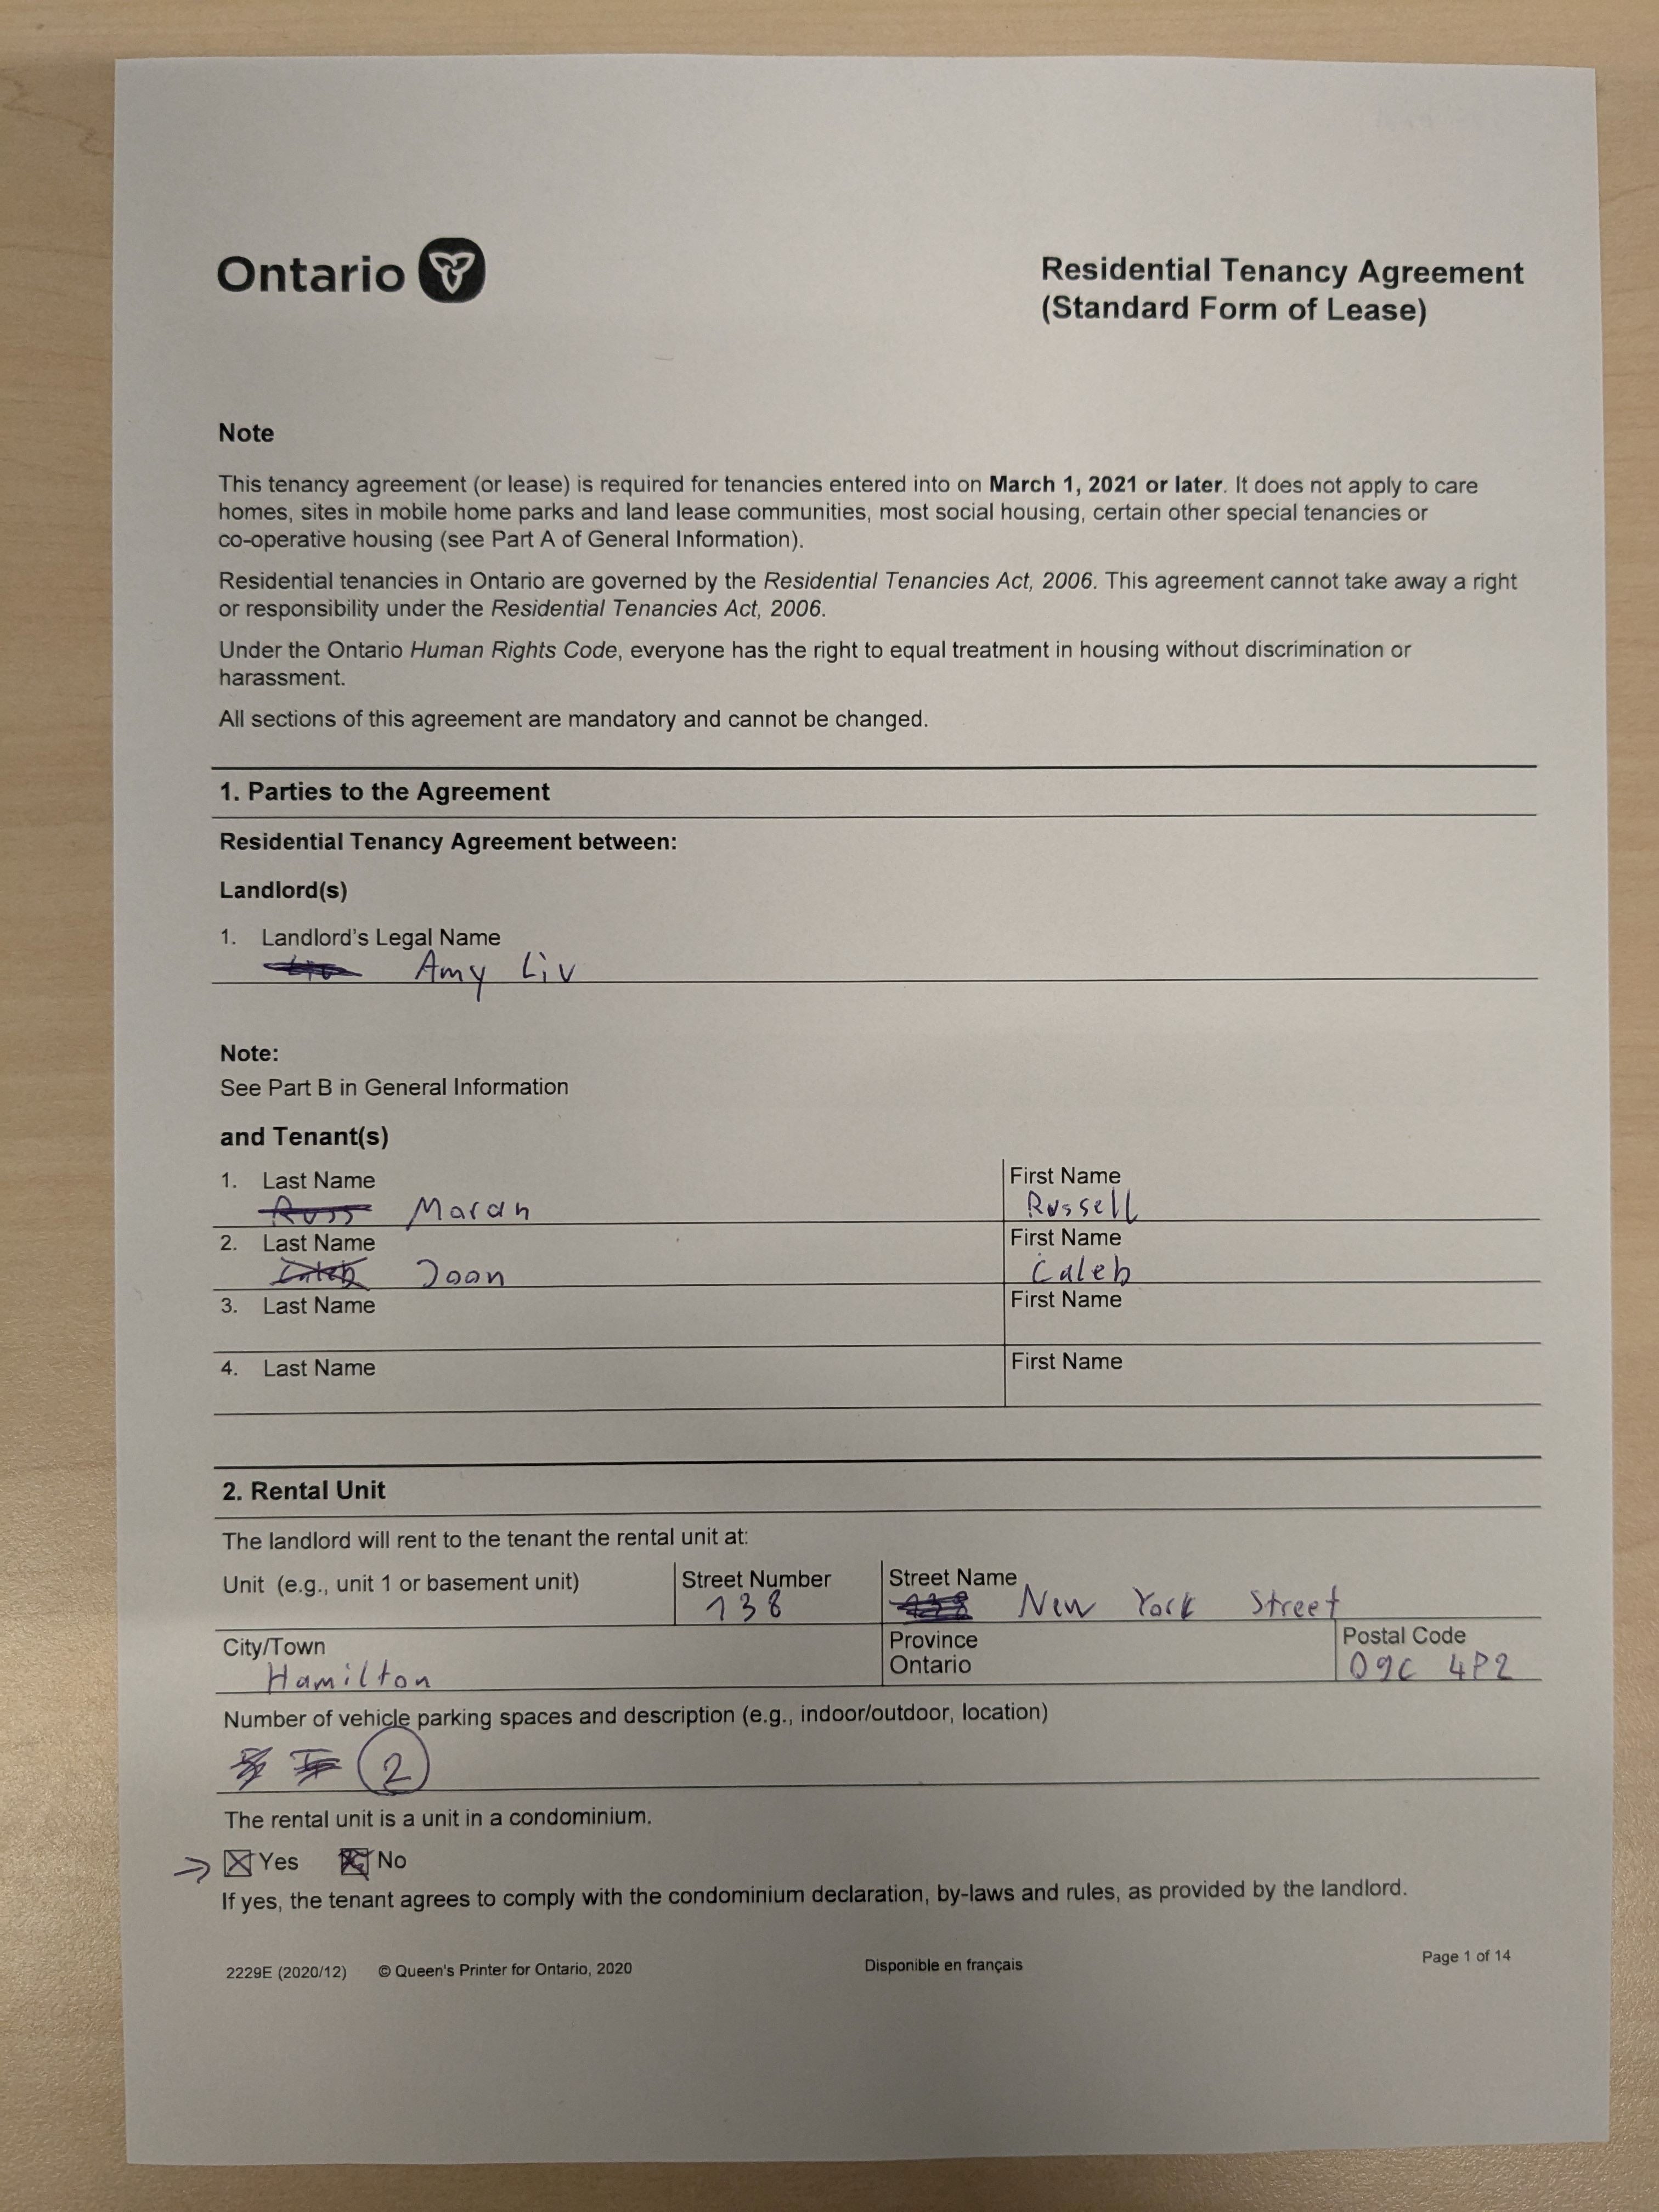 Ontario
Residential Tenancy Agreement
(Standard Form of Lease)
Note
This tenancy agreement (or lease) is required for tenancies entered into on March 1, 2021 or later. It does not apply to care
homes, sites in mobile home parks and land lease communities, most social housing, certain other special tenancies or
co-operative housing (see Part A of General Information).
Residential tenancies in Ontario are governed by the Residential Tenancies Act, 2006. This agreement cannot take away a right
or responsibility under the Residential Tenancies Act, 2006.
Under the Ontario Human Rights Code, everyone has the right to equal treatment in housing without discrimination or
harassment.
All sections of this agreement are mandatory and cannot be changed.
1. Parties to the Agreement
Residential Tenancy Agreement between:
Landlord(s)
1. Landlord's Legal Name
Amy Liv
Note:
See Part B in General Information
and Tenant(s)
1. Last Name First Name
Russ Maran Russell
2. Last Name First Name
Caleb Joon Caleb
3. Last Name First Name
4. Last Name First Name
2. Rental Unit
The landlord will rent to the tenant the rental unit at:
Unit (e.g., unit 1 or basement unit) Street Number Street Name
138 138 New York Street
City/Town Province Postal Code
Hamilton Ontario 09C 4P2
Number of vehicle parking spaces and description (e.g., indoor/outdoor, location)
2
The rental unit is a unit in a condominium.
→ ☒ Yes No
If yes, the tenant agrees to comply with the condominium declaration, by-laws and rules, as provided by the landlord.
2229E (2020/12) © Queen's Printer for Ontario, 2020 Disponible en français Page 1 of 14